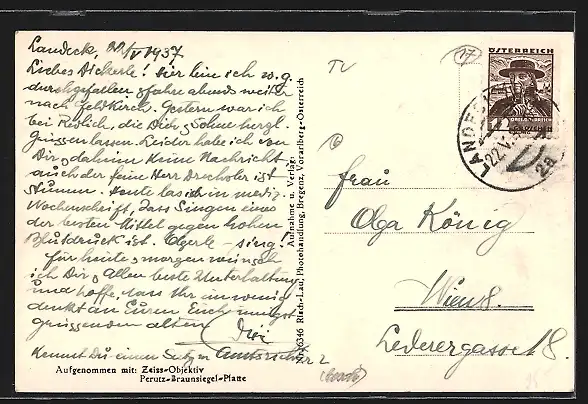 Landeck, 22/V 1937
Liebes Dickerle! Hier bin ich u. g.
durchgefallen & fahre abends weiter
nach Feldkirch. Gestern war ich
bei Redlich, die Dich & Söhne herzl.
grüssen lassen. Leider habe ich von
Dir & daheim keine Nachricht
auch der feine Herr ist
stumm. Heute las ich in mediz.
Wochenschrift, dass Singen eines
der besten Mittel gegen hohen
Blutdruck ist. Olgerle - sing!
Für heute & morgen wünsch
ich Dir & Allen beste Unterhaltung
und hoffe, dass Ihr an
denkt an Euren Euch innigst
grüssenden alten
Kennst Du einen
Aufgenommen mit: Zeiss-Objektiv
Perutz-Braunsiegel-Platte
Aufnahme u. Verlag:
Risch-Lau, Photohandlung, Bregenz, Vorarlberg-Österreich
17
ÖSTERREICH
LANDECK
22.V.
2a
Frau
Olga König
Wien 8.
Lederergasse 18.